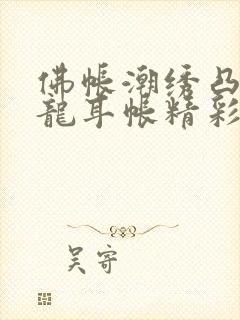 佛帳潮绣凸
龍耳帐精彩
吴寄